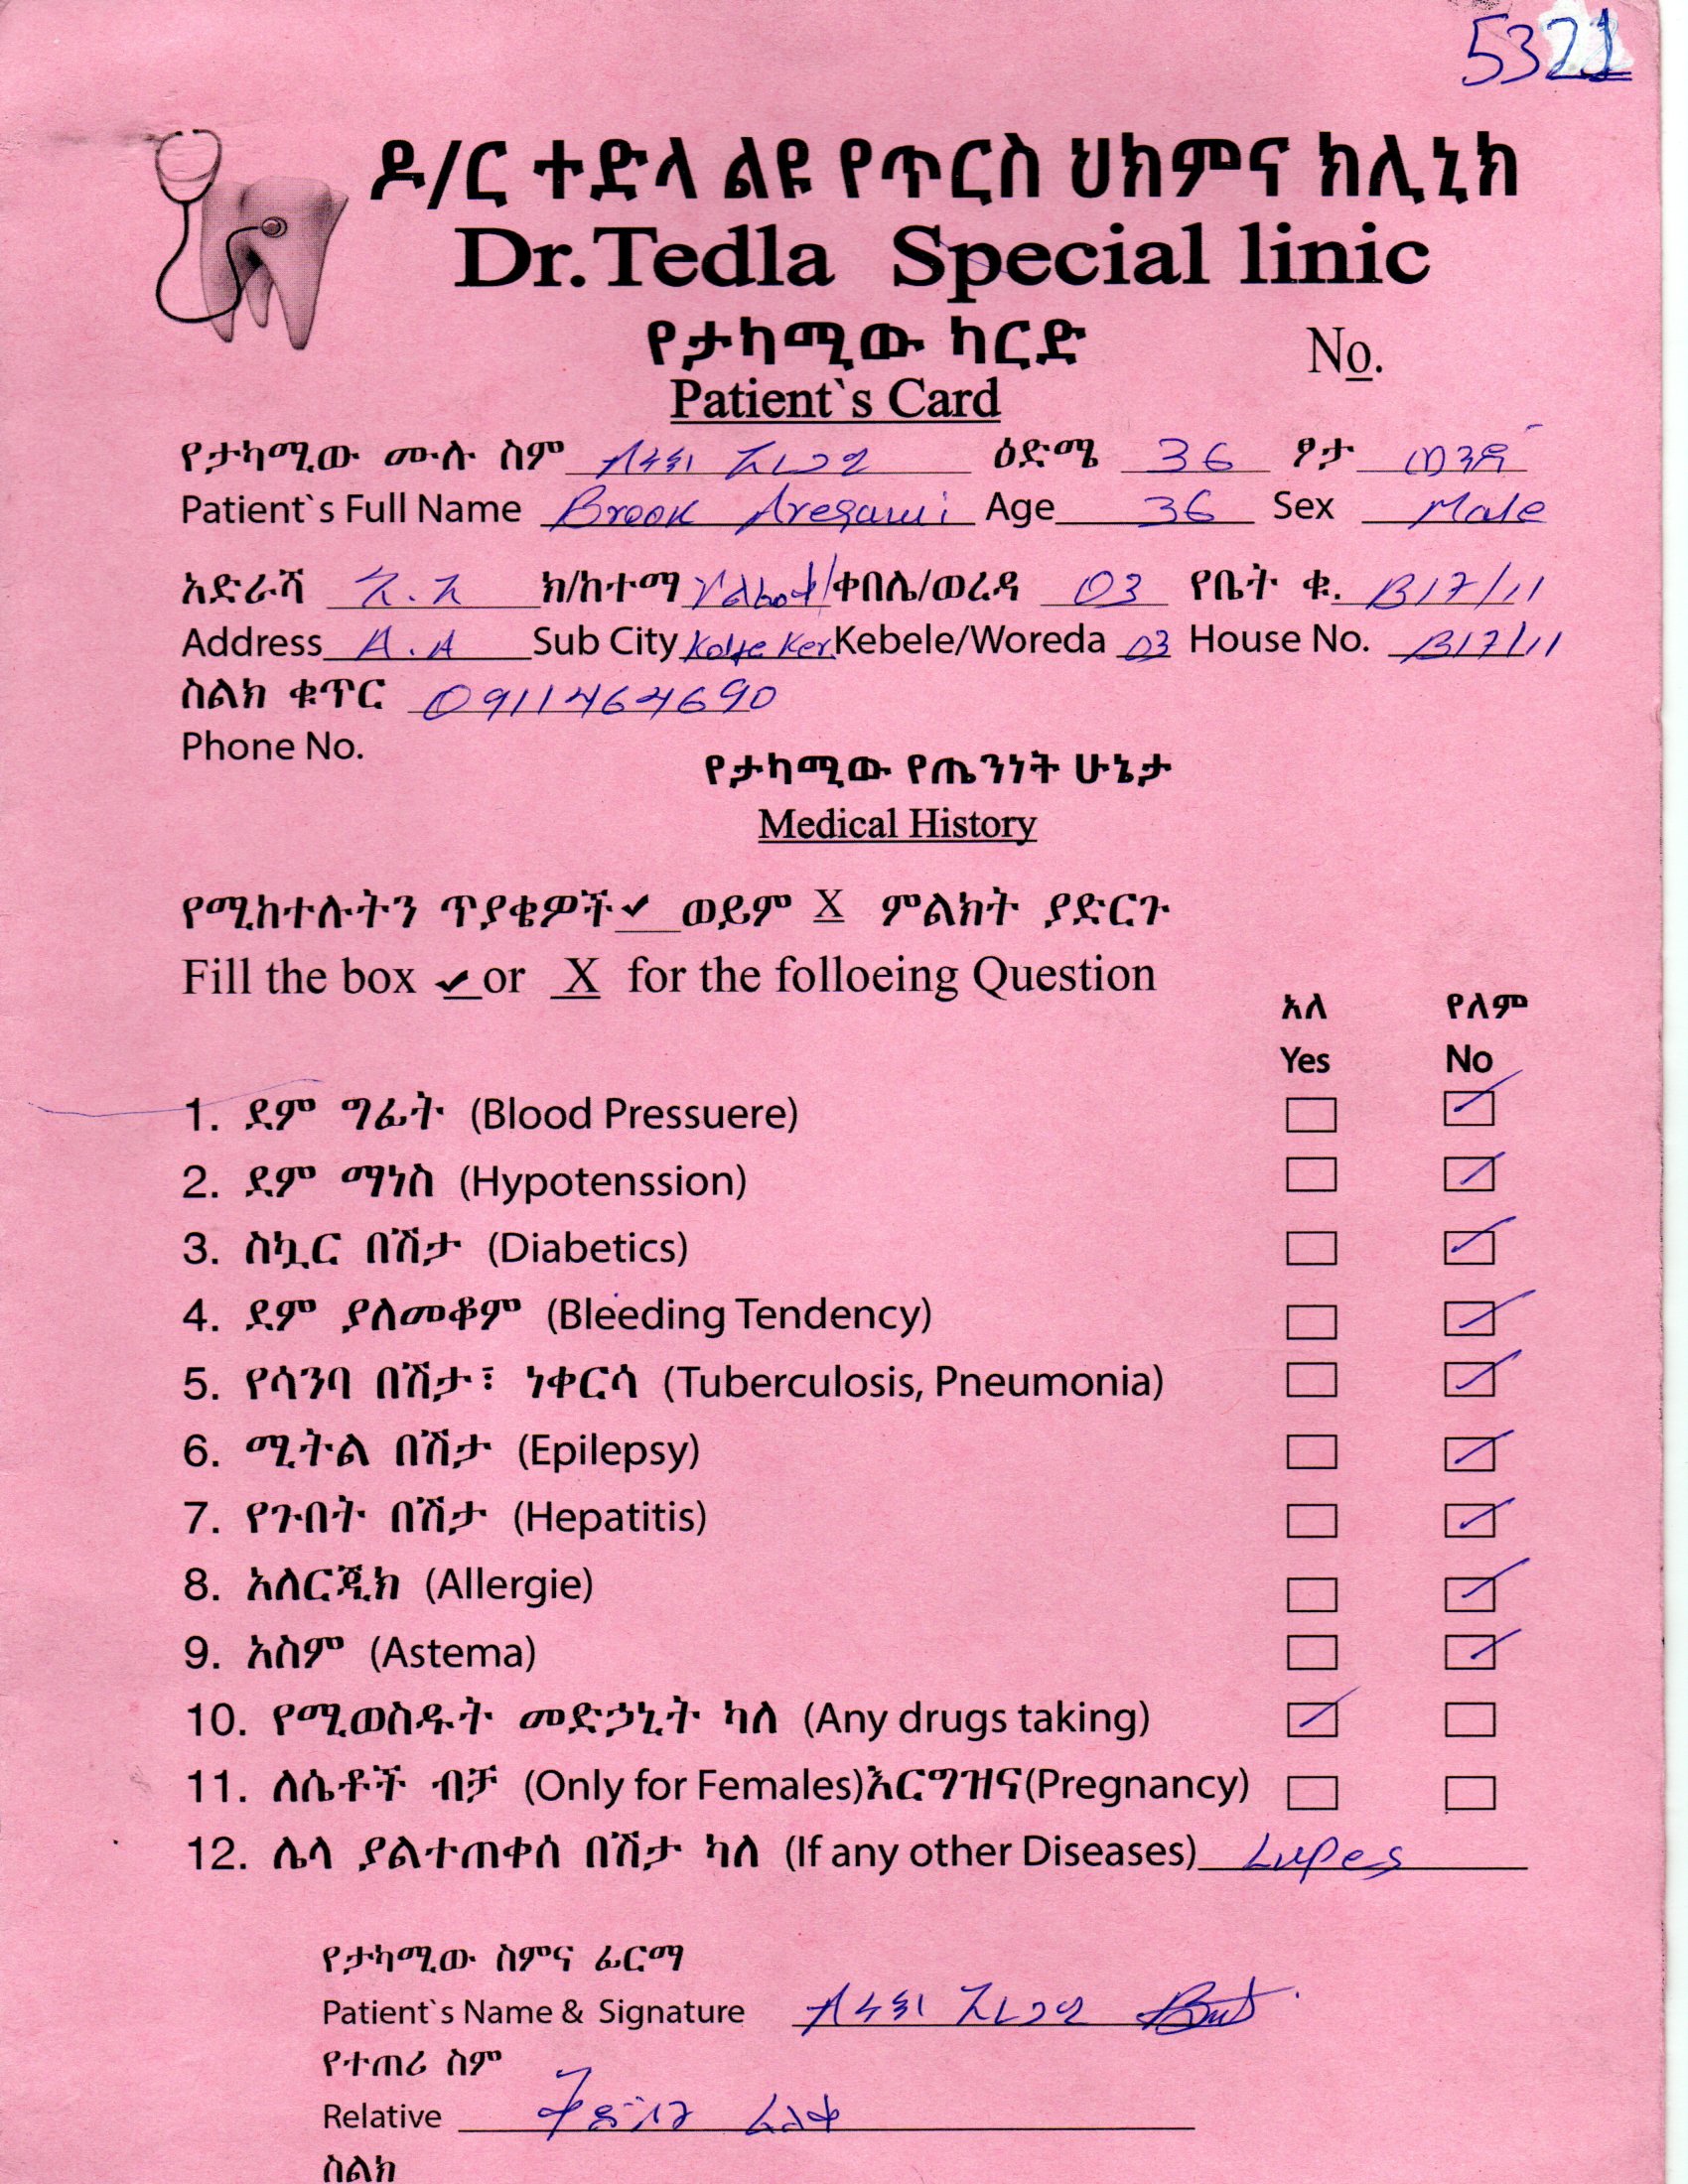 5321
ዶ/ር ተድላ ልዩ የጥርስ ህክምና ክሊኒክ
Dr.Tedla Special linic
የታካሚው ካርድ
No.
Patient`s Card
የታካሚው ሙሉ ስም ብሩክ አረጋዊ ዕድሜ 36 ፆታ ወንድ
Patient`s Full Name Brook Aregawi Age 36 Sex Male
አድራሻ አ.አ ክ/ከተማ ቀበሌ/ወረዳ 03 የቤት ቁ. B17/11
Address A.A Sub City Kolfe Ker. Kebele/Woreda 03 House No. B17/11
ስልክ ቁጥር 0911464690
Phone No.
የታካሚው የጤንነት ሁኔታ
Medical History
የሚከተሉትን ጥያቄዎች ✔ ወይም X ምልክት ያድርጉ
Fill the box ✔ or X for the folloeing Question
አለ የለም
Yes No
1. ደም ግፊት (Blood Pressuere)
2. ደም ማነስ (Hypotenssion)
3. ስኳር በሽታ (Diabetics)
4. ደም ያለመቆም (Bleeding Tendency)
5. የሳንባ በሽታ፣ ነቀርሳ (Tuberculosis, Pneumonia)
6. ሚትል በሽታ (Epilepsy)
7. የጉበት በሽታ (Hepatitis)
8. አለርጂክ (Allergie)
9. አስም (Astema)
10. የሚወስዱት መድኃኒት ካለ (Any drugs taking)
11. ለሴቶች ብቻ (Only for Females)እርግዝና(Pregnancy)
12. ሌላ ያልተጠቀሰ በሽታ ካለ (If any other Diseases) Lupes
የታካሚው ስምና ፊርማ
Patient`s Name & Signature ብሩክ አረጋዊ
የተጠሪ ስም
Relative
ስልክ